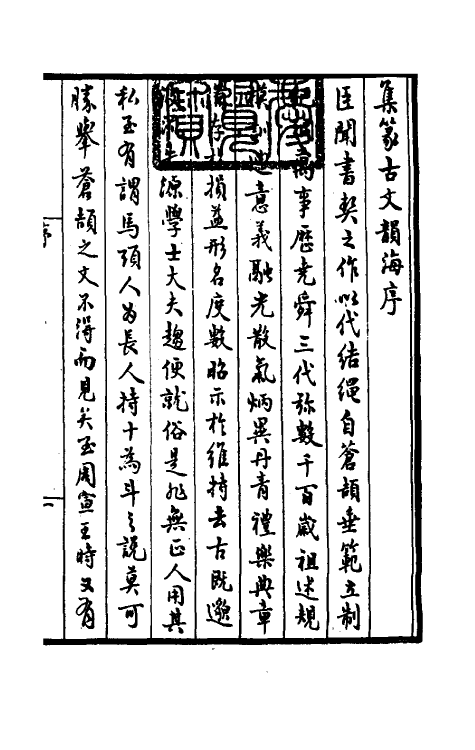 集篆古文韻海序
臣聞書契之作以代結繩自蒼頡垂範立制
萬事歷堯舜三代殆數千百歲祖述規
意義融光散氣炳異丹青禮樂典章
損益形名度數昭示於維持去古既邈
源學士大夫趨便就俗是非無正人用其
私至有謂馬頭人為長人持十為斗之說莫可
勝舉蒼頡之文不得而見矣至周宣王時又有
序
一